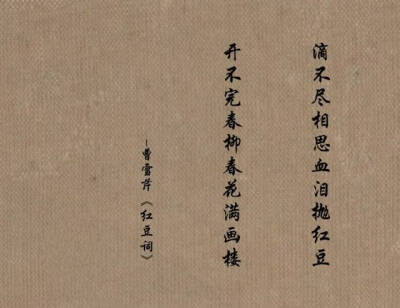 滴不尽相思血泪抛红豆
开不完春柳春花满画楼
-曹雪芹《红豆词》